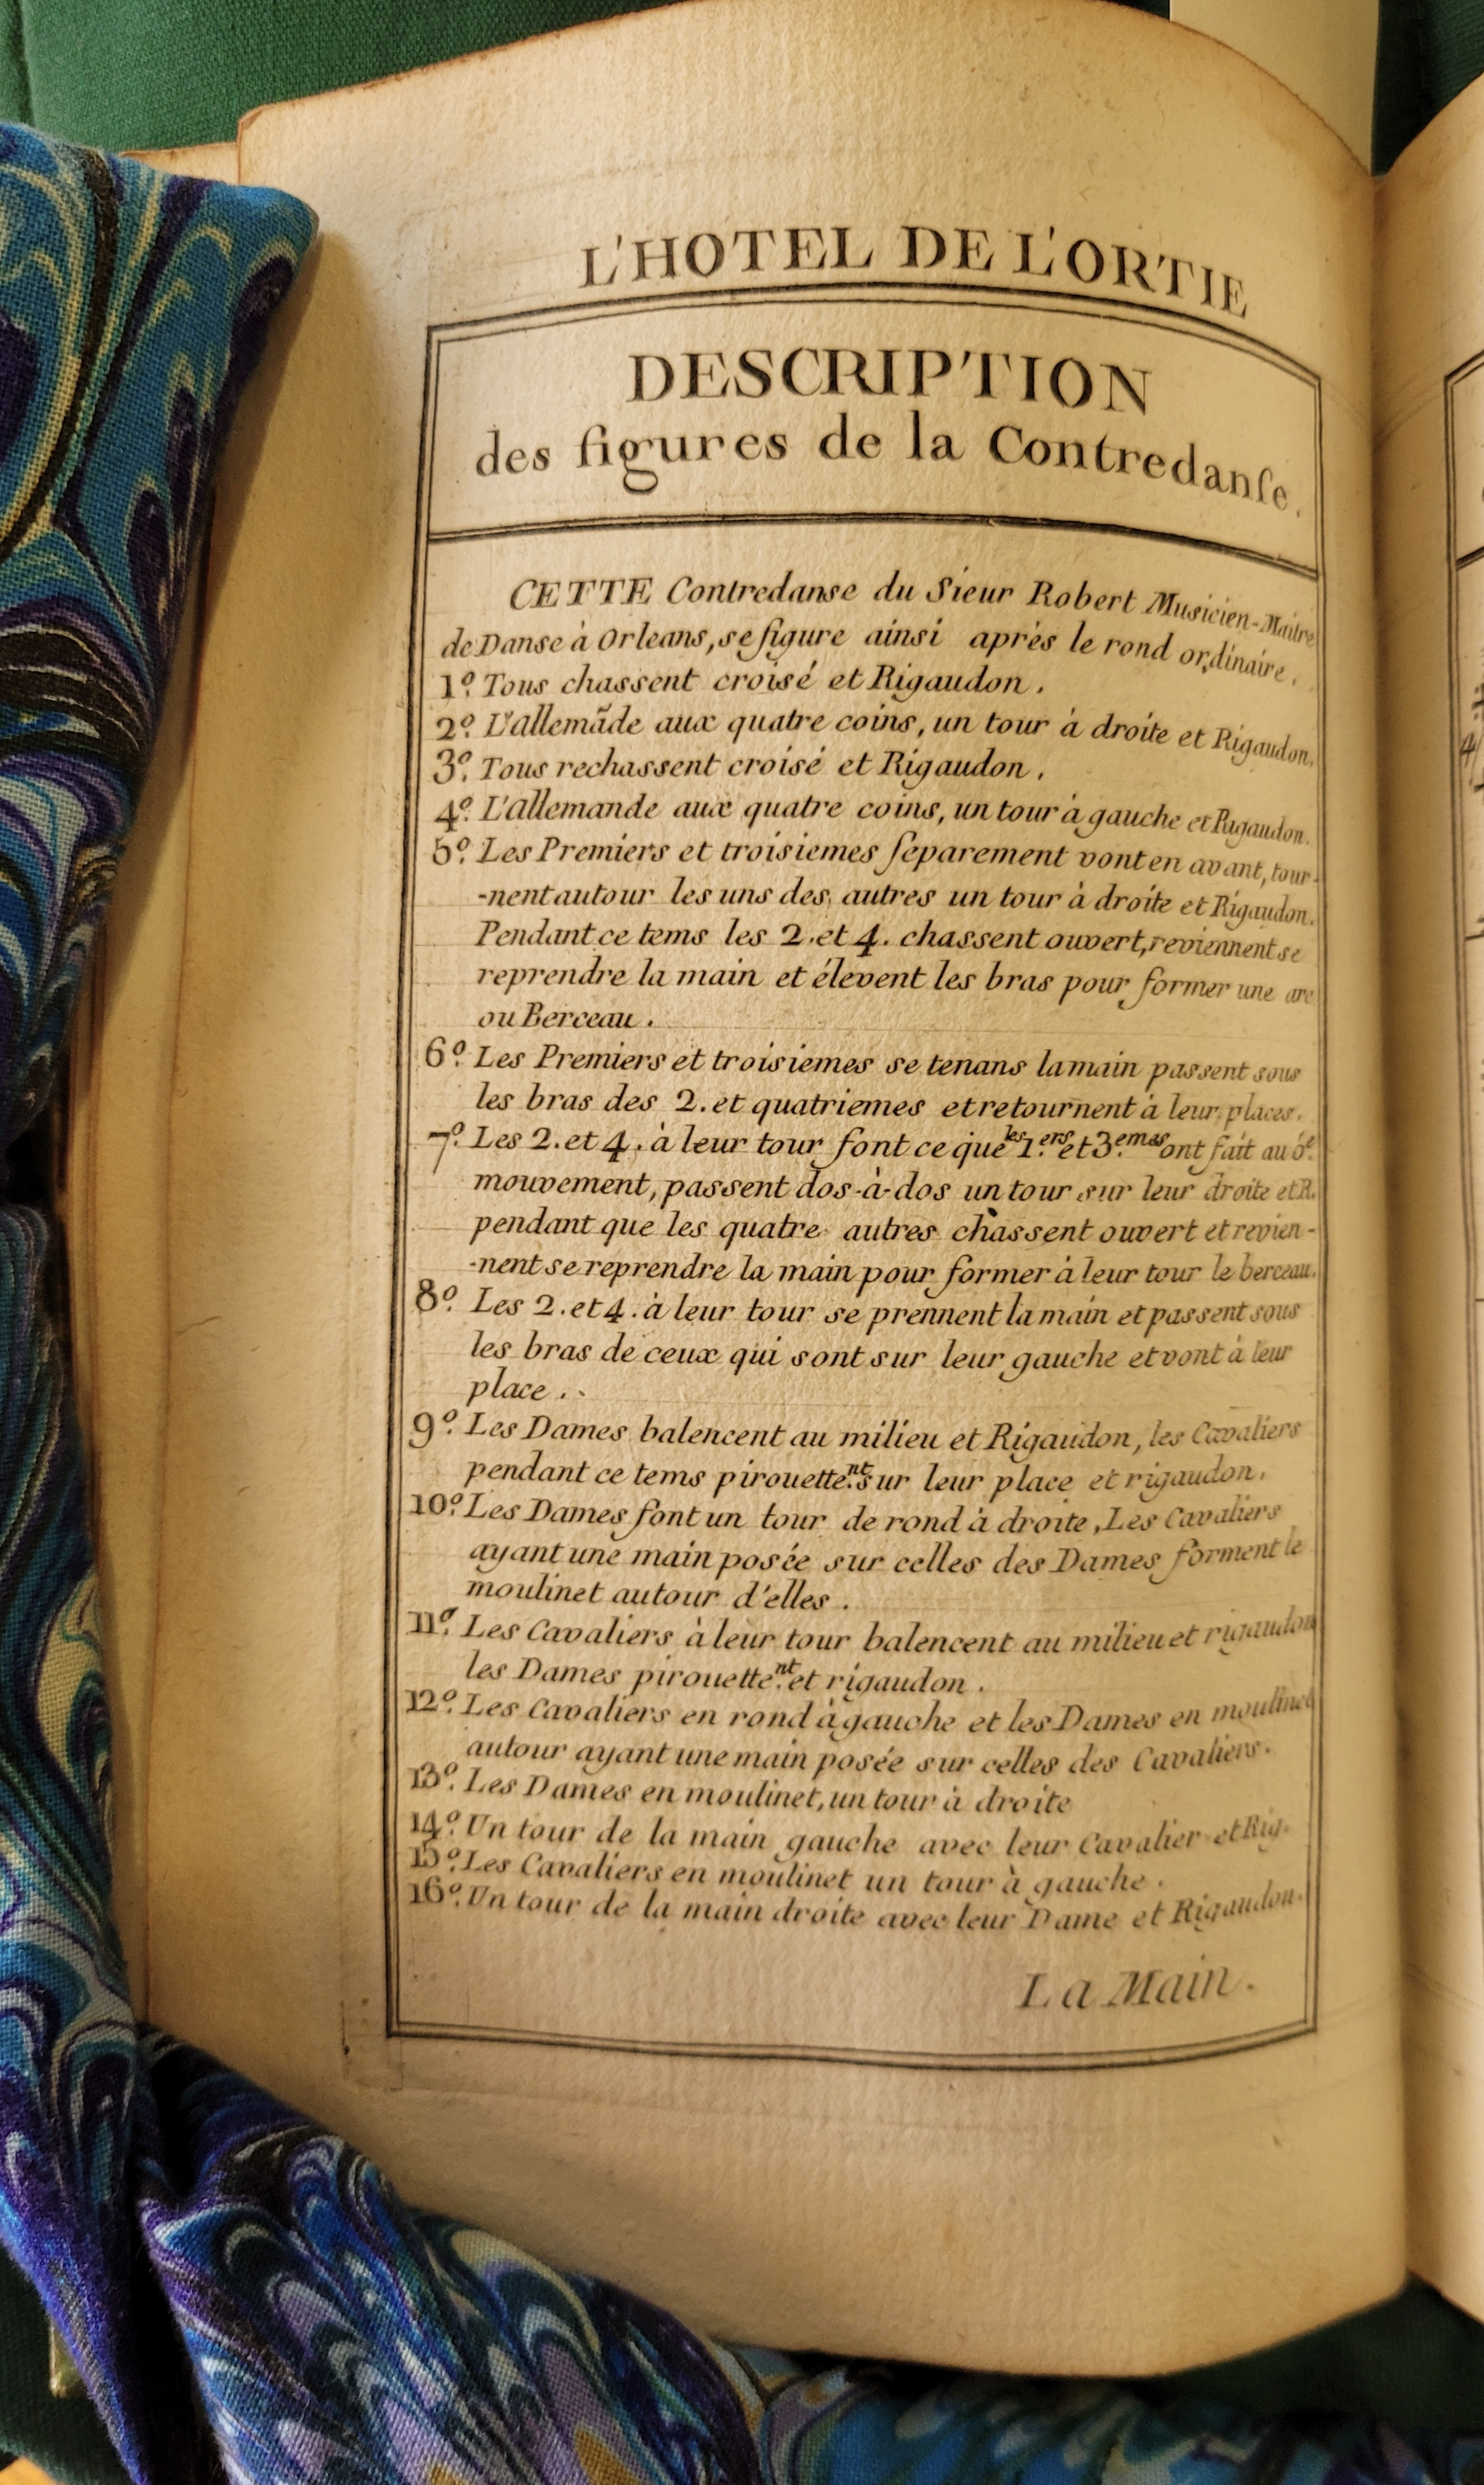 L'HOTEL DE L'ORTIE
DESCRIPTION
des figures de la Contredanſe.
CETTE Contredanse du Sieur Robert Musicien-Maitre
de Danse à Orleans, se figure ainsi après le rond ordinaire.
1º. Tous chassent croisé et Rigaudon.
2º. L'allemãde aux quatre coins, un tour à droite et Rigaudon.
3º. Tous rechassent croisé et Rigaudon.
4º. L'allemande aux quatre coins, un tour à gauche et Rigaudon.
5º. Les Premiers et troisiemes ſeparement vont en avant, tour-
-nent autour les uns des autres un tour à droite et Rigaudon.
Pendant ce tems les 2. et 4. chassent ouvert, reviennent se
reprendre la main et élevent les bras pour former une arc
ou Berceau.
6º. Les Premiers et troisiemes se tenans la main passent sous
les bras des 2. et quatriemes et retournent à leur places.
7º. Les 2. et 4. à leur tour font ce que les 1.ers et 3.emes ont fait au 5e.
mouvement, passent dos-à-dos un tour sur leur droite et R.
pendant que les quatre autres chassent ouvert et revien-
-nent se reprendre la main pour former à leur tour le berceau.
8º. Les 2. et 4. à leur tour se prennent la main et passent sous
les bras de ceux qui sont sur leur gauche et vont à leur
place.
9º. Les Dames balencent au milieu et Rigaudon, les Cavaliers
pendant ce tems pirouette.nt sur leur place et rigaudon.
10º. Les Dames font un tour de rond à droite, Les Cavaliers
ayant une main posée sur celles des Dames forment le
moulinet autour d'elles.
11º. Les Cavaliers à leur tour balencent au milieu et rigaudon
les Dames pirouette.nt et rigaudon.
12º. Les Cavaliers en rond à gauche et les Dames en moulinet
autour ayant une main posée sur celles des Cavaliers.
13º. Les Dames en moulinet, un tour à droite
14º. Un tour de la main gauche avec leur Cavalier et Rig.
15º. Les Cavaliers en moulinet un tour à gauche.
16º. Un tour de la main droite avec leur Dame et Rigaudon.
La Main.